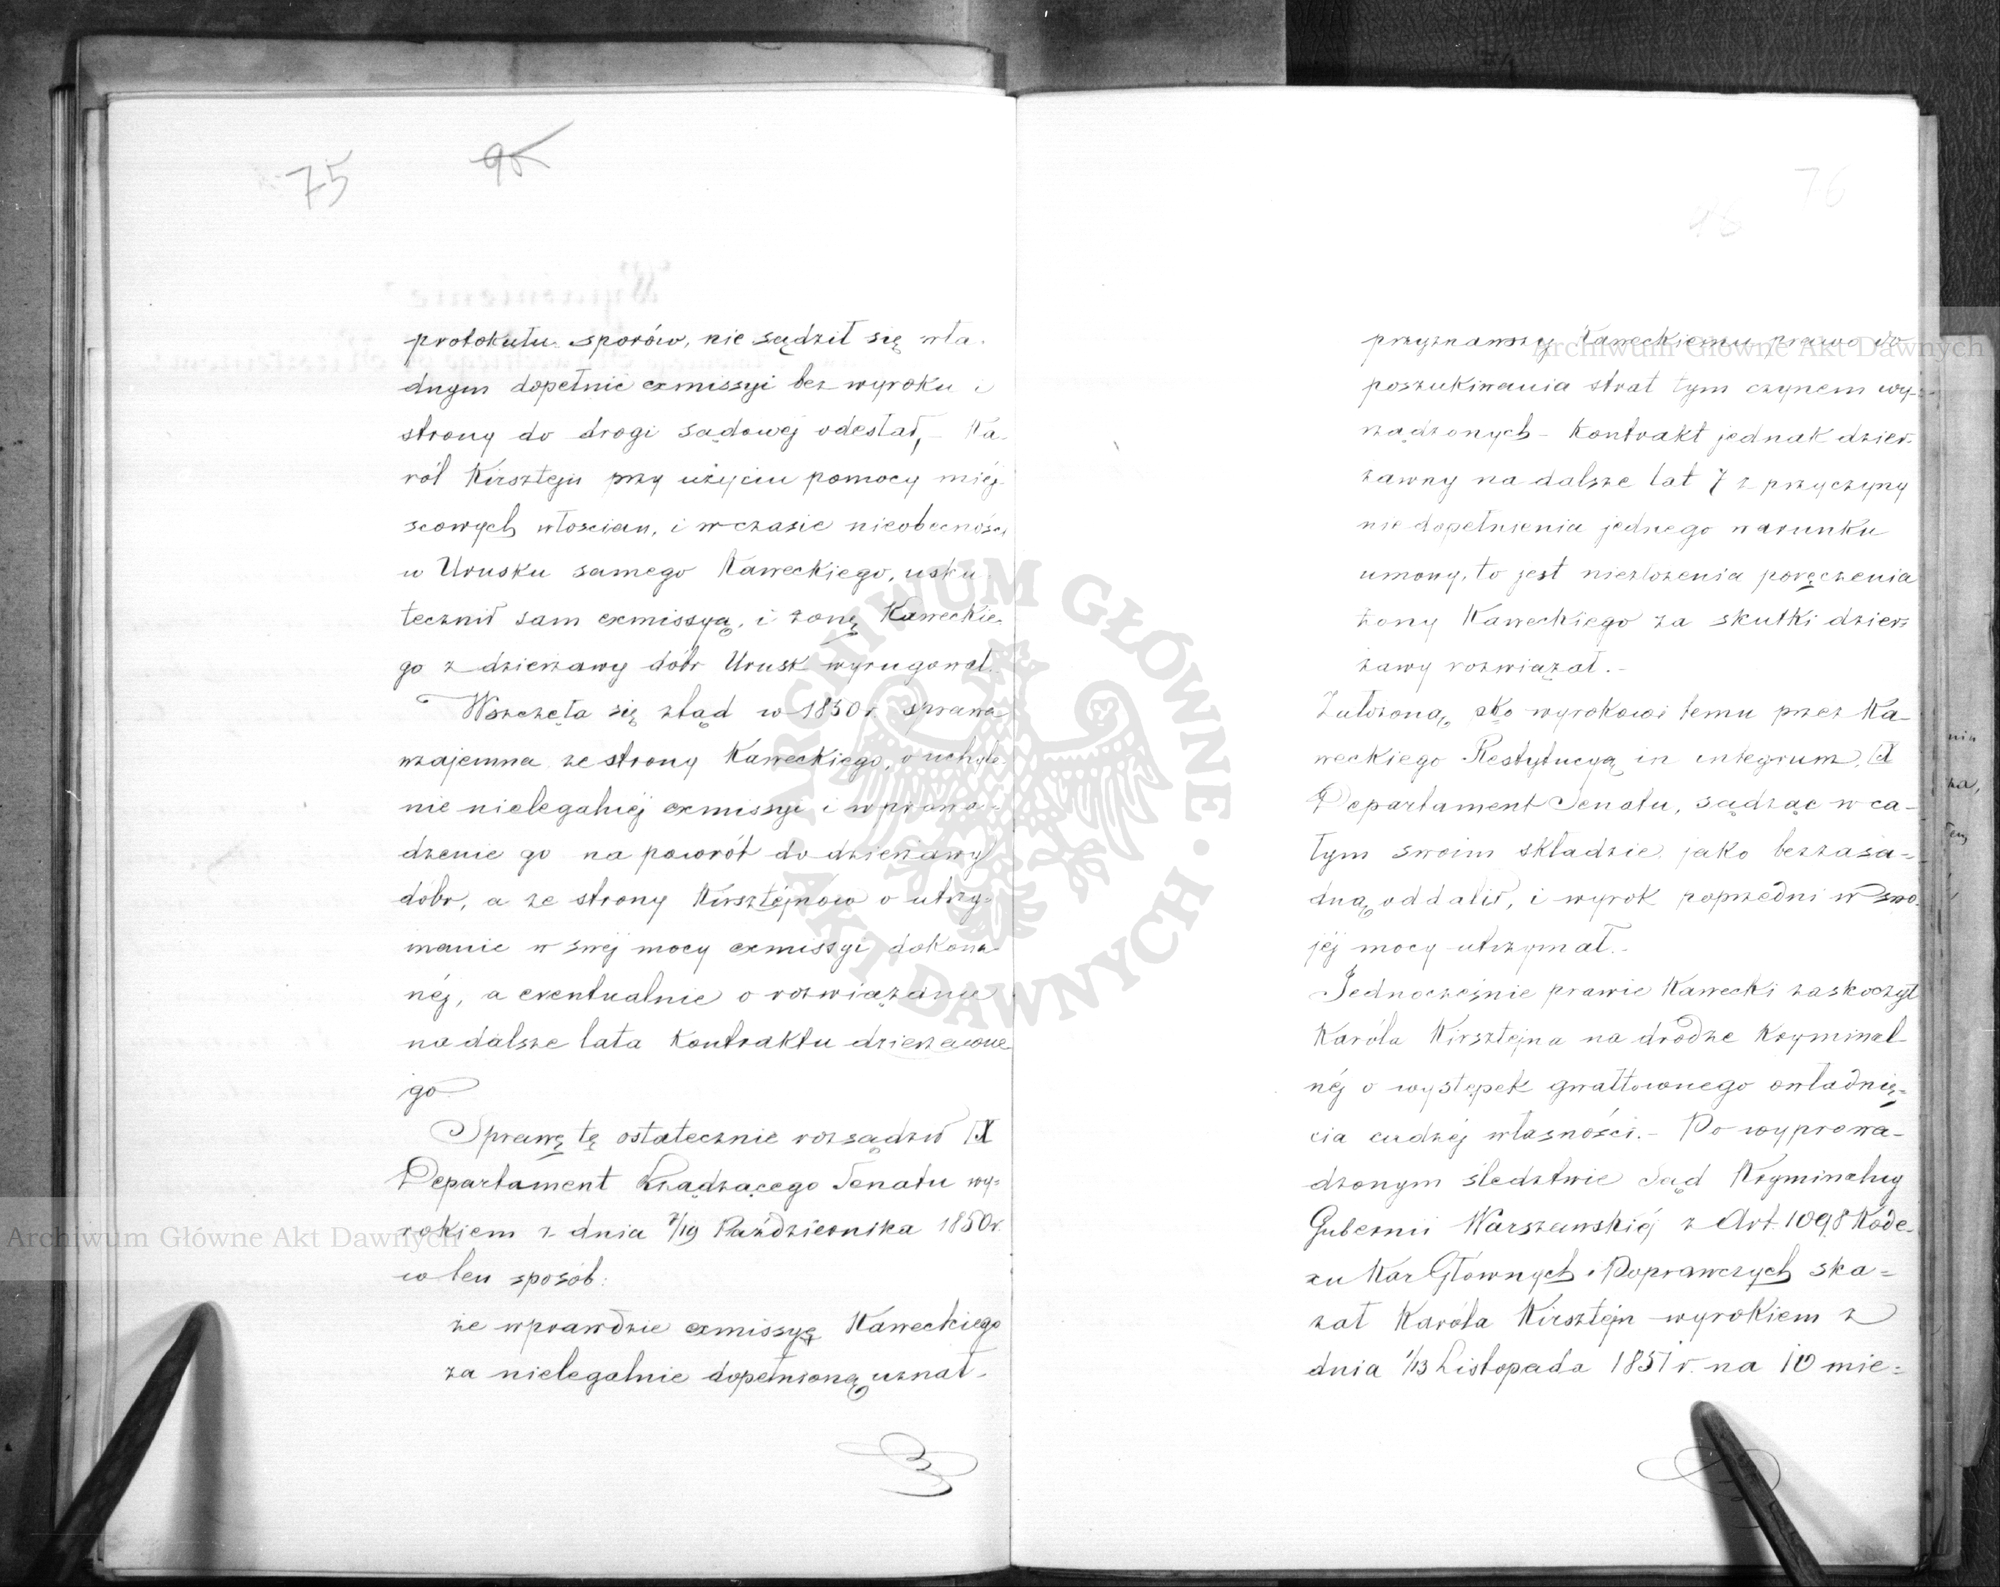 75
95
protokułu sporów, nie sądził się wła-
dnym dopełnić exmissyi bez wyroku i
strony do drogi sądowéj odesłał, – Ka-
ról Kirsztejn przy użyciu pomocy miéj-
scowych włościan, i w czasie nieobecności
w Urusku samego Kaweckiego, usku-
tecznił sam exmissyą, i żonę Kaweckie-
go z dzierżawy dóbr Urusk wyrugował.
Wszczęła się ztąd w 1850 r. sprawa
wzajemna ze strony Kaweckiego, o uchyle-
nie nielegalnéj exmissyi i wprowa-
dzenie go na powrót do dzierżawy
dóbr, a ze strony Kirsztejnów o utrzy-
manie w swéj mocy exmissyi dokona-
néj, a eventualnie o rozwiązanie
na dalsze lata Kontraktu dzierżawne-
go
Sprawę tę ostatecznie rozsądził IX
Departament Rządzącego Senatu wy-
rokiem z dnia 7/19 Października 1850 r.
w ten sposób:
że wprawdzie exmissyę Kaweckiego
za nielegalnie dopełnioną uznał –
76
przyznawszy Kaweckiemu prawo do
poszukiwania strat tym czynem wy-
rządzonych – Kontrakt jednak dzier-
żawny na dalsze lat 7 z przyczyny
niedopełnienia jednego warunku
umowy, to jest niezłożenia poręczenia
żony Kaweckiego za skutki dzier-
żawy rozwiązał. –
Założoną, sko wyrokowi temu przez Ka-
weckiego Restytucyą in integrum, IX
Departament Senatu, sądząc w ca-
łym swoim składzie, jako bezzasa-
dną oddalił, i wyrok poprzedni w swo-
jéj mocy utrzymał. –
Jednocześnie prawie Kawecki zaskarżył
Karóla Kirsztejna na drodze Kryminal-
néj o występek gwałtownego owładnię-
cia cudzéj własności. – Po wyprowa-
dzonym śledztwie Sąd Kryminalny
Gubernii Warszawskiéj z Art. 1098 Kode-
xu Kar Głównych i Poprawczych ska-
zał Karóla Kirsztejn wyrokiem z
dnia 1/13 Listopada 1851 r. na 10 mie-
Archiwum Główne Akt Dawnych
Archiwum Główne Akt Dawnych
ARCHIWUM GŁÓWNE • AKT DAWNYCH •